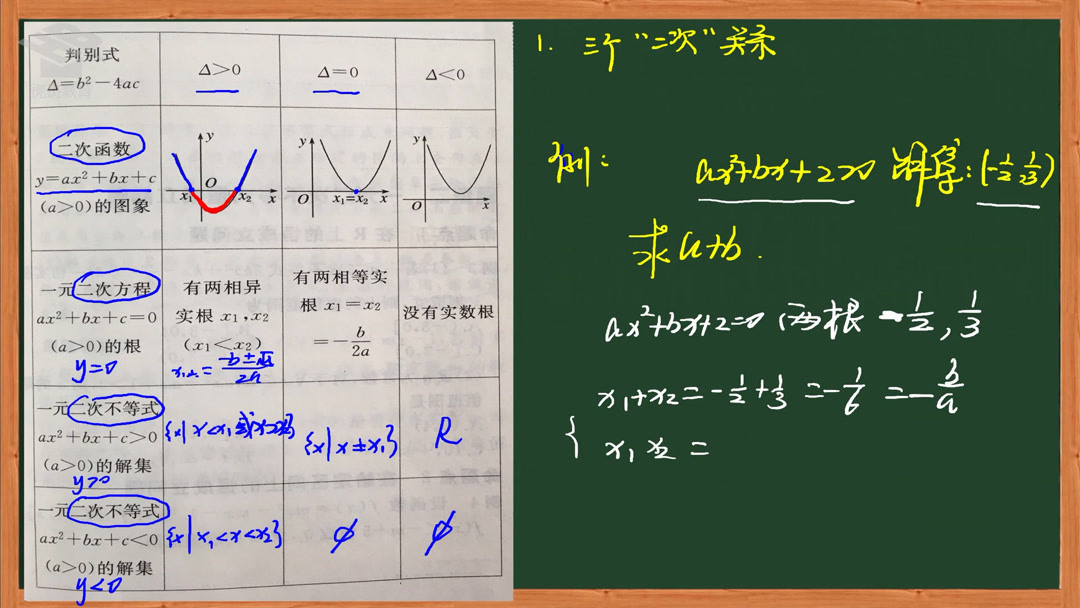 判别式
Δ=b²-4ac
Δ>0
Δ=0
Δ<0
二次函数
y=ax²+bx+c
(a>0)的图象
y
O
x₁
x₂
x
y
O
x₁=x₂
x
y
O
x
一元二次方程
ax²+bx+c=0
(a>0)的根
y=0
有两相异
实根 x₁,x₂
(x₁<x₂)
x₁,₂=(-b±√Δ)/2a
有两相等实
根 x₁=x₂
=-b/2a
没有实数根
一元二次不等式
ax²+bx+c>0
(a>0)的解集
y>0
{x|x<x₁或x>x₂}
{x|x≠x₁}
R
一元二次不等式
ax²+bx+c<0
(a>0)的解集
y<0
{x|x₁<x<x₂}
∅
∅
1. 三个“二次”关系
例: ax²+bx+2>0 解集:(-1/2,1/3)
求a+b.
ax²+bx+2=0 两根 -1/2,1/3
x₁+x₂=-1/2+1/3=-1/6=-b/a
{ x₁x₂=